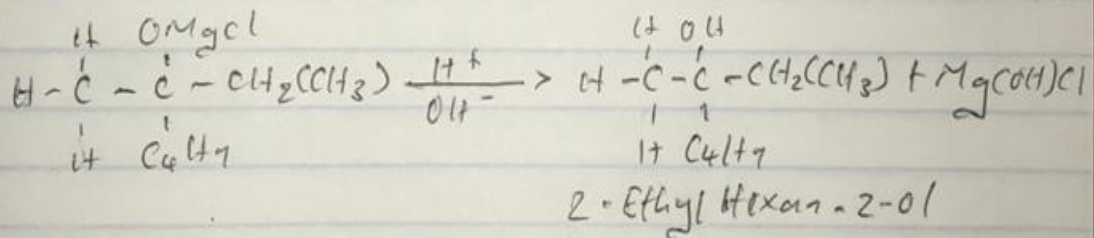 H OMgCl H OH
H - C - C - CH2(CH3) H+ > H - C - C - CH2(CH3) + Mg(OH)Cl
OH-
H C4H9 H C4H9
2 - Ethyl Hexan - 2-ol